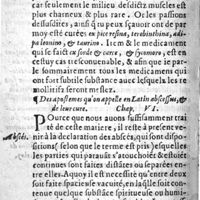 car seulement le milieu desdictz muscles est
plus charneux & plus rare. Or les passions
desusdites, ainsi qu peu x sçauoir ont de moy
esté curées: ex pice resina, terebinthina, adi-
pe leonino, & taurino. Item & le medicament
se faict ex foecis & cocca, & cyamoru, est en
cestuy cas tresconuenable, & afin que ie par-
le sommairement tous les medicamens qui
ont fort subtile substance auec lesquelz les re
mollitifz soient meslez.
¶ Des apostemes qu'on appelle en Latin abscessus, &
de leur cure. Chap. VI.
Abscés.
POurce que nous auons suffisammēt traité
de ceste matiere, il reste à present ve-
nir à la declaration des abscés, qui sont dispo-
sitions, selon que le terme est pris, lesquelles
les parties qui parauāt s'atouchoiēt & estoiēt
continues sont faites distātes ou separées en-
tre elles. Aquoy il est necessité qu'entre deux
soit faite spacieuse vacuité, en laquelle soit
contenue quelque substāce spirituelle ou humi-